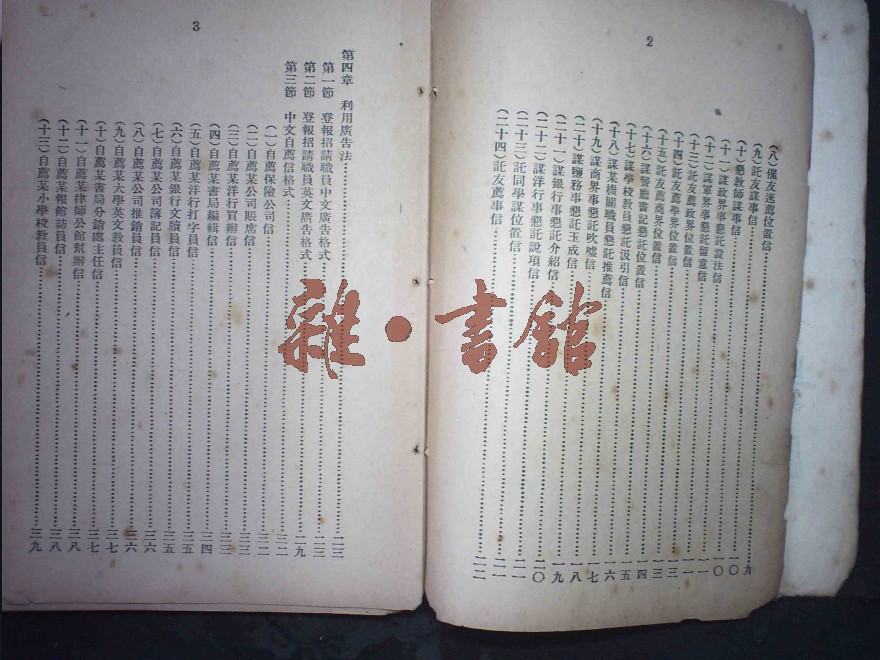 2
(八)催友速薦位置信……九
(九)託友謀事信……一〇
(十)懇教師謀事信……一〇
(十一)謀政界事懇託設法信……一一
(十二)謀軍界事懇託留意信……一一
(十三)託友薦政界位置信……一三
(十四)託友薦學界位置信……一三
(十五)託友薦商界位置信……一四
(十六)謀餐廳書記懇託位置信……一五
(十七)謀學校教員懇託汲引信……一六
(十八)謀某機關職員懇託推薦信……一七
(十九)謀商界事懇託吹噓信……一八
(二十)謀鹽務事懇託玉成信……一九
(二十一)謀銀行事懇託介紹信……二〇
(二十二)謀洋行事懇託說項信……二一
(二十三)託同學謀位置信……二一
(二十四)託友薦事信……二二
3
第四章 利用廣告法……二三
第一節 登報招請職員中文廣告格式……二三
第二節 登報招請職員英文廣告格式……二九
第三節 中文自薦信格式……三二
(一)自薦保險公司信……三二
(二)自薦某公司賬席信……三三
(三)自薦某洋行買辦信……三三
(四)自薦某書局編輯信……三四
(五)自薦某洋行打字員信……三五
(六)自薦某銀行文牘員信……三五
(七)自薦某公司簿記員信……三六
(八)自薦某公司推銷員信……三六
(九)自薦某大學英文教員信……三七
(十)自薦某書局分銷處主任信……三七
(十一)自薦某律師公館幫辦信……三八
(十二)自薦某報館訪員信……三八
(十三)自薦某小學校教員信……三九
雜·書館